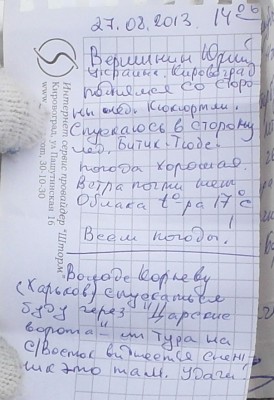 27.08.2013. 14 06
Вершинин Юрий
Украина. Кировоград
поднялся со сторо
ны лед. Кюкюртлю.
Спускаюсь в сторону
лед. Битик-Тюбе.
погода хорошая.
Ветра почти нет
Облака t°-ра 17°С
Всем погоды!
Володе Корневу
(Харьков) Спускаться
буду через "Царские
ворота" - от тура на
С/Восток виднеется снеж
ник это там. Удачи!
Интернет сервис провайдер "Шторм"
Кировоград, ул
16
www.
.com, 30-10-30